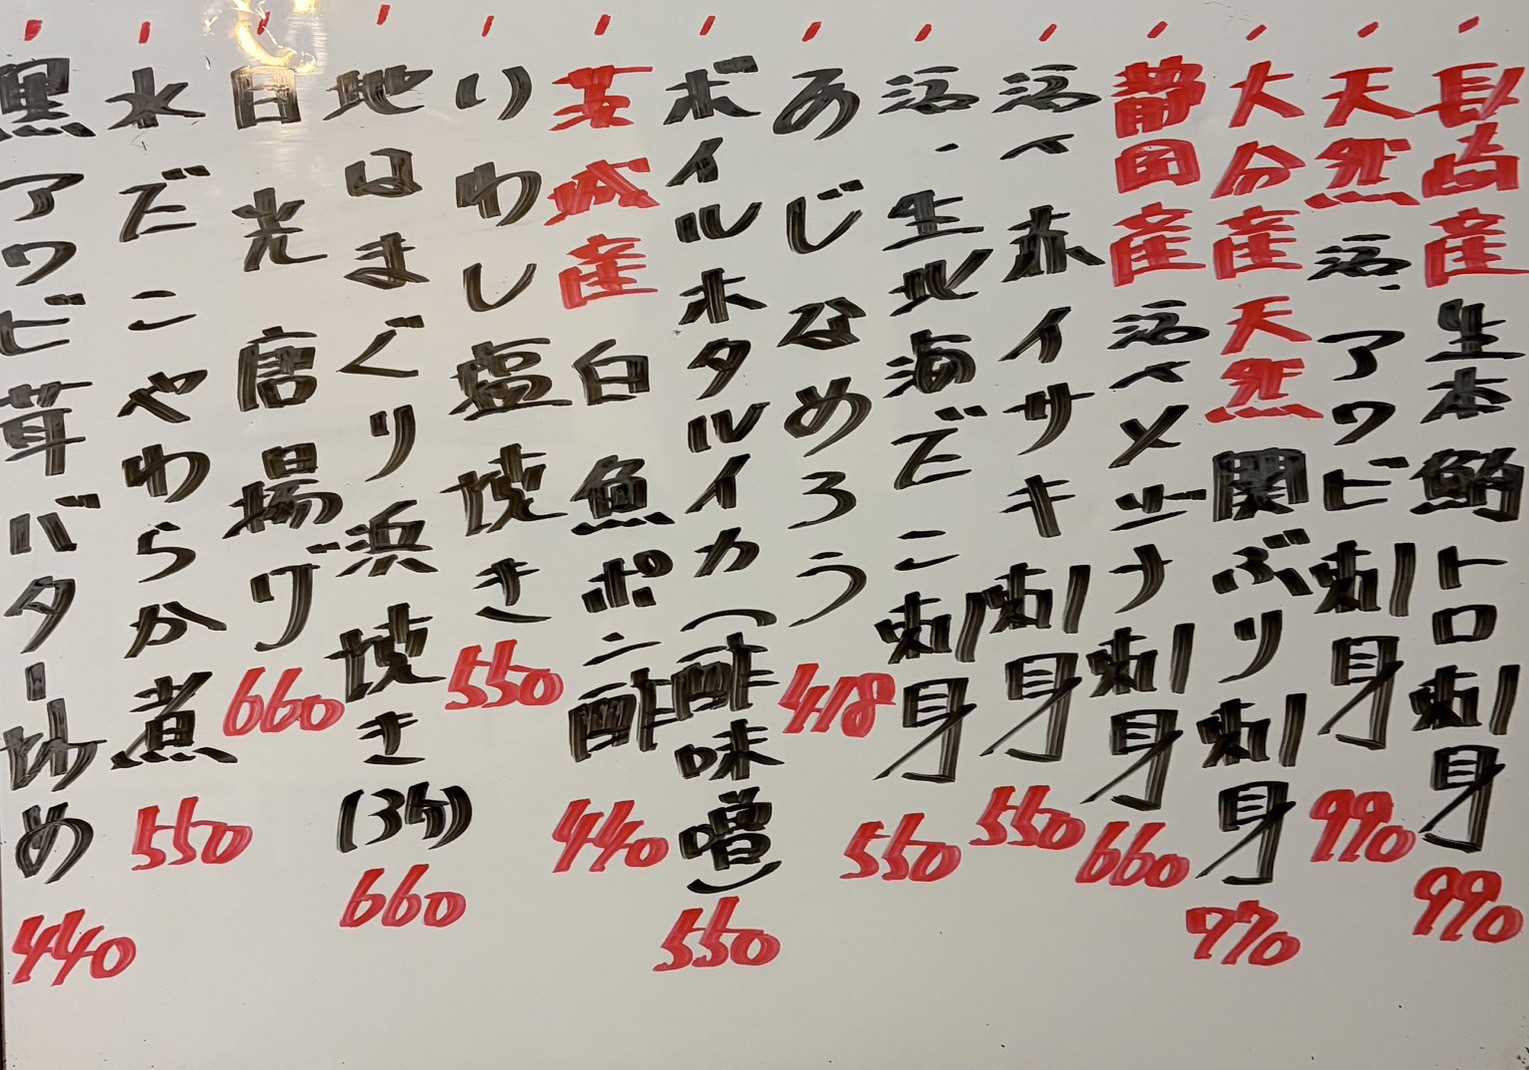 長崎産生本鮪トロ刺身 990
天然活アワビ刺身 990
大分産天然関ぶり刺身 770
静岡産活〆メジナ刺身 660
活〆赤イサキ刺身 550
活・生地海だこ刺身 550
あじなめろう 418
ボイルホタルイカ(酢味噌) 550
茨城産白魚ポン酢 440
いわし塩焼き 550
地はまぐり浜焼き(3ケ) 660
目光唐揚げ 660
水だこやわらか煮 550
黒アワビ茸バター炒め 440